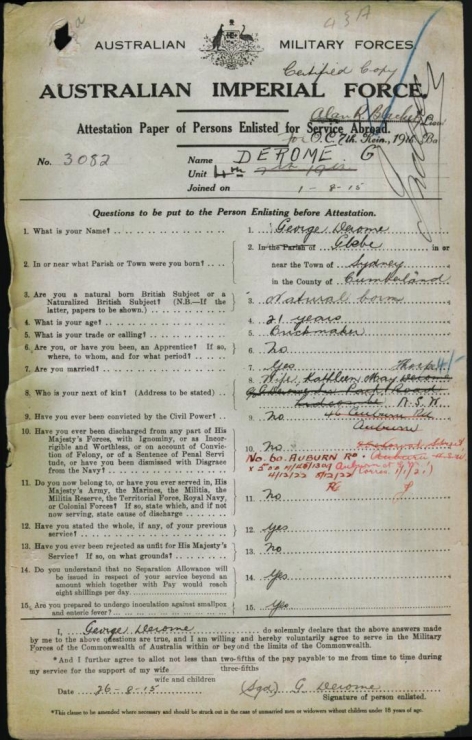 43A
AUSTRALIAN MILITARY FORCES.
Certified Copy
AUSTRALIAN IMPERIAL FORCE.
Attestation Paper of Persons Enlisted for Service Abroad.
for O.C. 7th Rein, 19th Bn
No. 3082 Name DEROME G
Unit 4th
Joined on 1-8-15
Questions to be put to the Person Enlisting before Attestation.
1. What is your Name? 1. George Derome
2. In or near what Parish or Town were you born? 2. In the Parish of Glebe in or
near the Town of Sydney
in the County of Cumberland
3. Are you a natural born British Subject or a Naturalized British Subject? (N.B.—If the latter, papers to be shown.) 3. Natural born
4. What is your age? 4. 21 years
5. What is your trade or calling? 5. Brickmaker
6. Are you, or have you been, an Apprentice? If so, where, to whom, and for what period? 6. No
7. Are you married? 7. Yes
8. Who is your next of kin? (Address to be stated) 8. Wife, Kathleen May Derome
N.S.W.
Auburn Rd
Auburn
9. Have you ever been convicted by the Civil Power? 9. No
10. Have you ever been discharged from any part of His Majesty's Forces, with Ignominy, or as Incorrigible and Worthless, or on account of Conviction of Felony, or of a Sentence of Penal Servitude, or have you been Dismissed with Disgrace from the Navy? 10. No
No. 60. AUBURN RD.
11. Do you now belong to, or have you ever served in, His Majesty's Army, the Marines, the Militia, the Militia Reserve, the Territorial Force, Royal Navy, or Colonial Forces? If so, state which, and if not now serving, state cause of discharge 11. No
12. Have you stated the whole, if any, of your previous service? 12. Yes
13. Have you ever been rejected as unfit for His Majesty's Service? If so, on what grounds? 13. No
14. Do you understand that no Separation Allowance will be issued in respect of your service beyond an amount which together with Pay would reach eight shillings per day. 14. Yes
15. Are you prepared to undergo inoculation against smallpox and enteric fever? 15. Yes
I, George Derome do solemnly declare that the above answers made
by me to the above questions are true, and I am willing and hereby voluntarily agree to serve in the Military
Forces of the Commonwealth of Australia within or beyond the limits of the Commonwealth.
*And I further agree to allot not less than two-fifths of the pay payable to me from time to time
three-fifths
during my service for the support of my wife
wife and children
Date 26-8-15 (Sgd) G Derome
Signature of person enlisted.
*This clause to be amended where necessary and should be struck out in the case of unmarried men or widowers without children under 18 years of age.